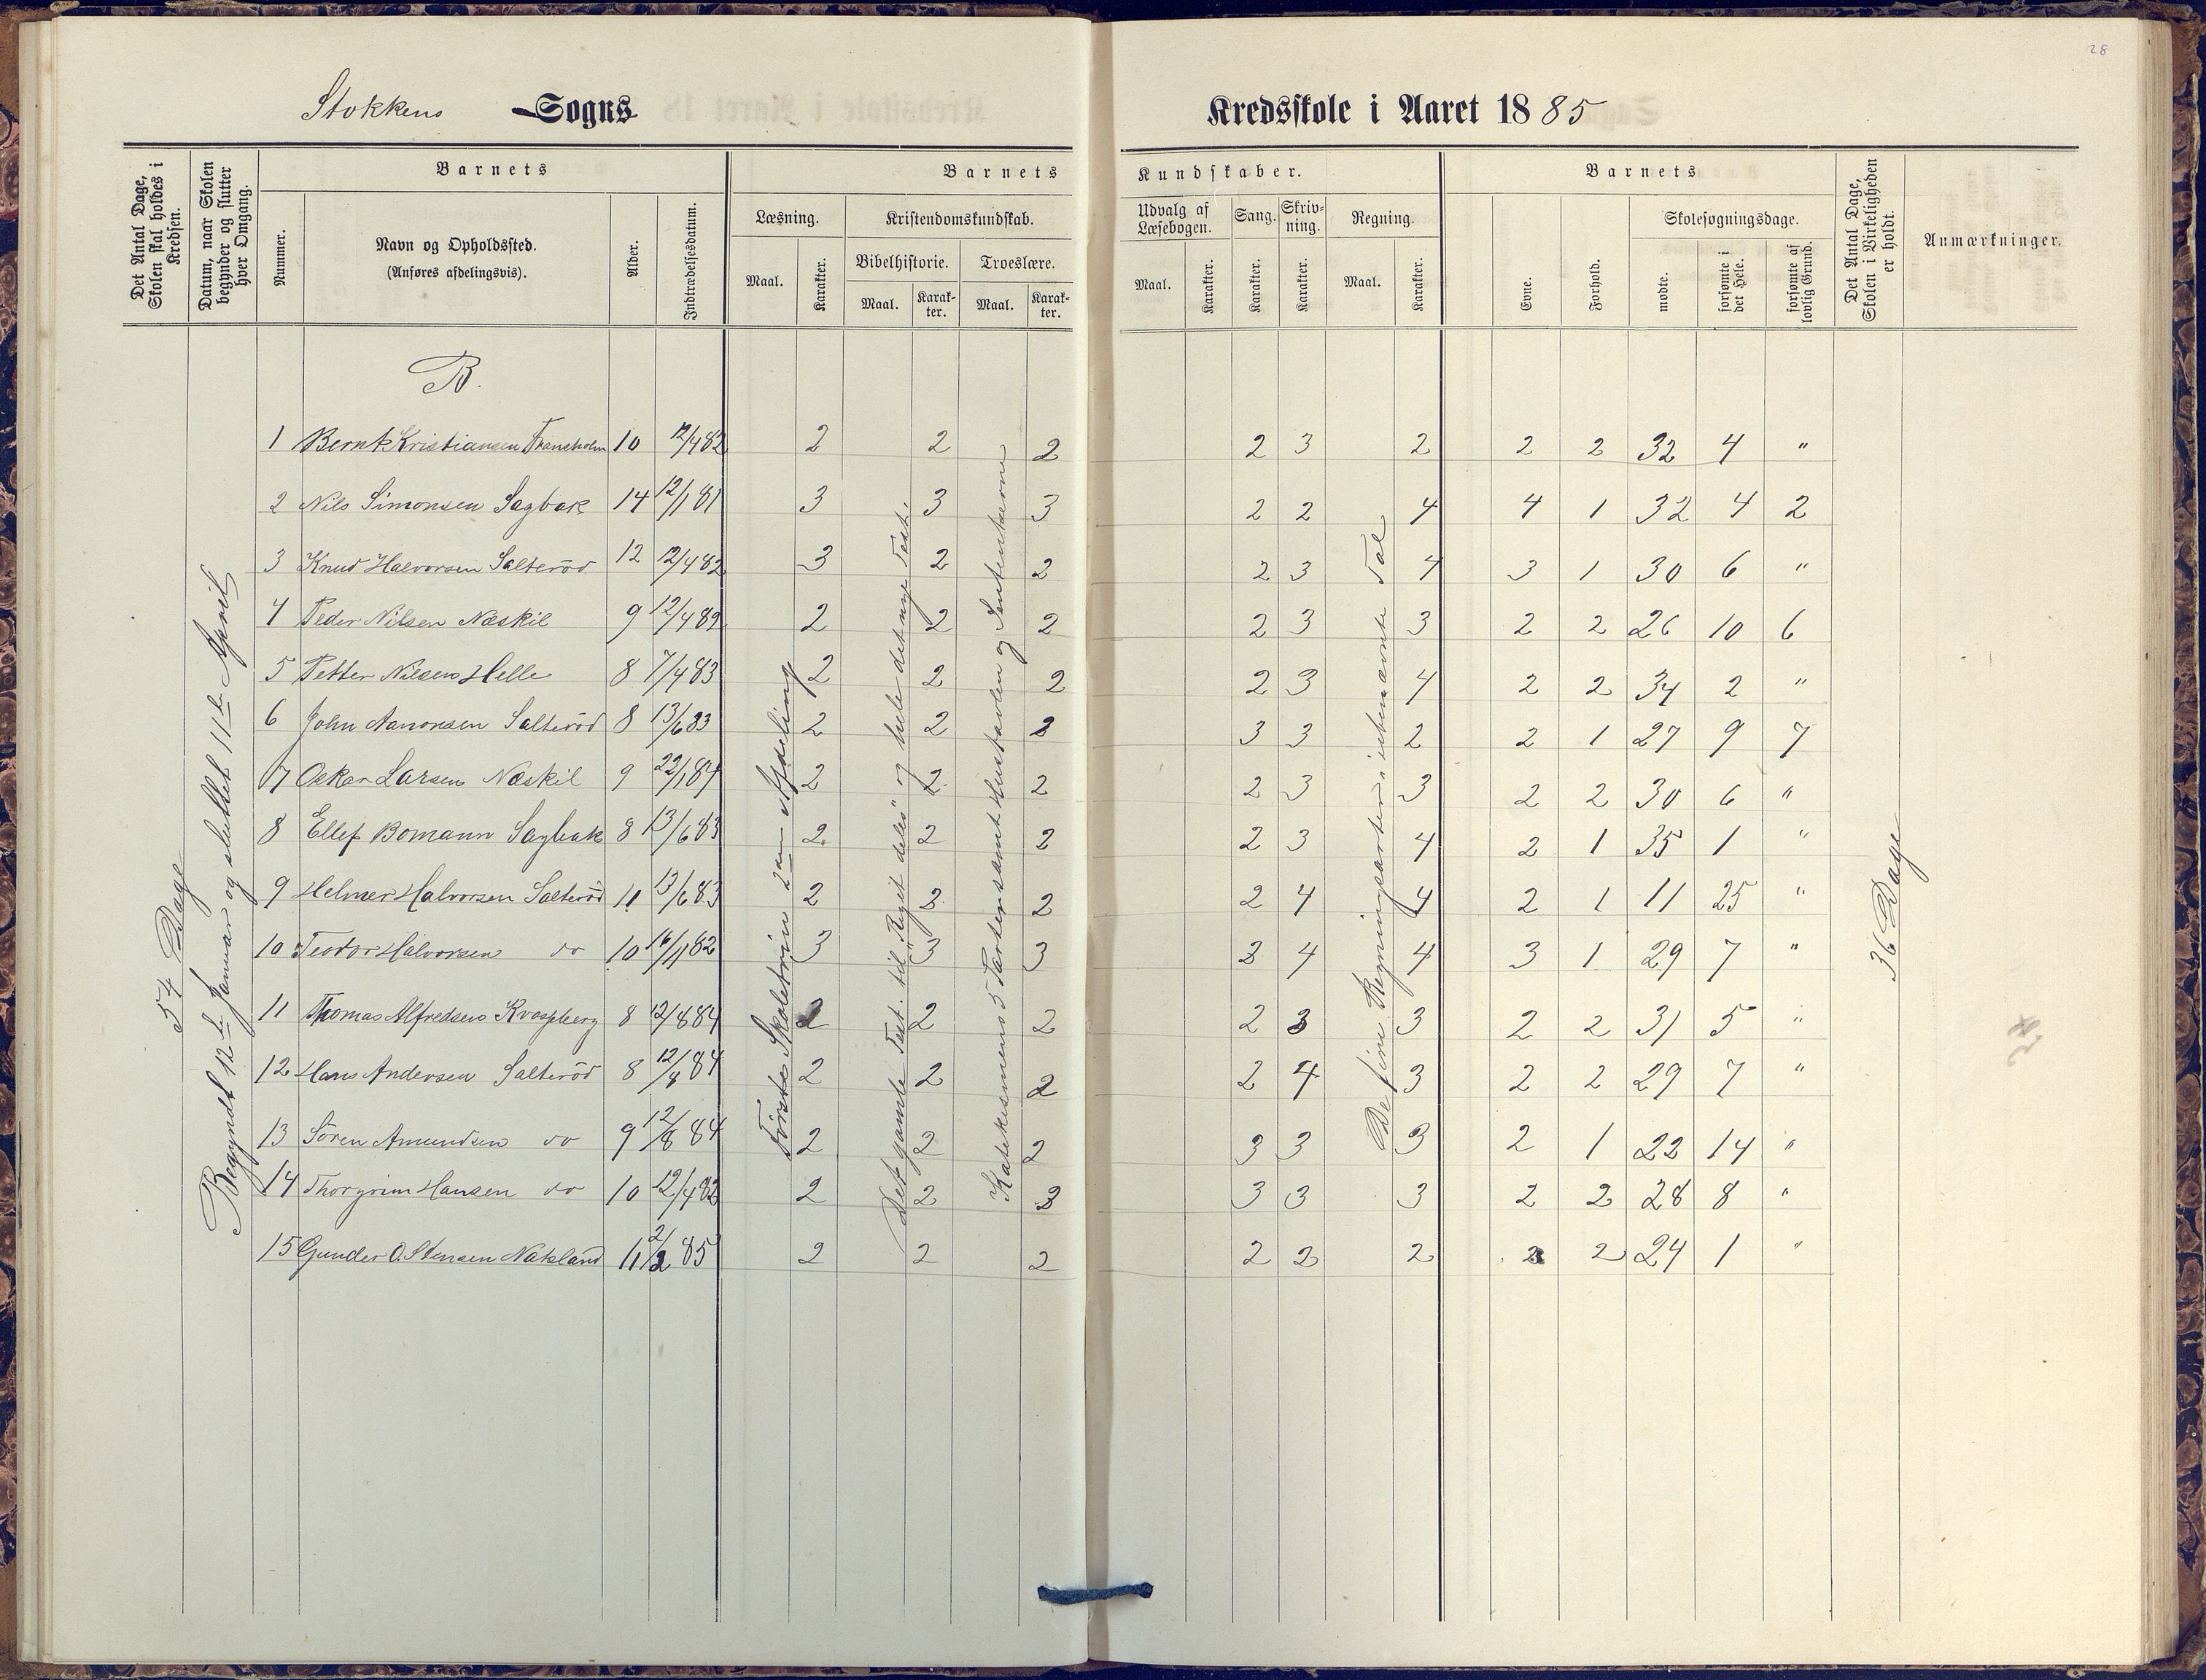 28
Stokkens Sogns Kredsskole i Aaret 1885
Det Antal Dage, Skolen skal holdes i Kredsen.
Datum, naar Skolen begynder og slutter hver Omgang.
Barnets
Nummer.
Navn og Opholdssted.
(Anføres afdelingsvis).
Alder.
Indtrædelsesdatum.
Barnets Kundskaber.
Læsning.
Maal.
Karakter.
Kristendomskundskab.
Bibelhistorie.
Maal.
Karakter.
Troeslære.
Maal.
Karakter.
Udvalg af Læsebogen.
Maal.
Karakter.
Sang.
Karakter.
Skrivning.
Karakter.
Regning.
Maal.
Karakter.
Barnets
Evne.
Forhold.
Skolesøgningsdage.
mødte.
forsømte i det Hele.
forsømte af lovlig Grund.
Det Antal Dage, Skolen i Virkeligheden er holdt.
Anmærkninger.
54 Dage
Begyndt 12te Januar og sluttet 11te April
B.
1 Bernt Kristiansen Fransholm 10 12/4 82 2 2 2 2 3 2 2 2 32 4 "
2 Nils Simonsen Sagbak 14 12/1 81 3 3 3 2 2 4 4 1 32 4 2
3 Knud Halvorsen Salterød 12 12/4 82 3 2 2 2 3 4 3 1 30 6 "
4 Peder Nilsen Næskil 9 12/4 82 2 2 2 2 3 3 2 2 26 10 6
5 Petter Nilsen Helle 8 7/4 83 2 2 2 2 3 4 2 2 34 2 "
6 John Aanonsen Salterød 8 13/6 83 2 2 2 3 3 2 2 1 27 9 7
7 Oskar Larsen Næskil 9 22/1 84 2 2 2 2 3 3 2 2 30 6 "
8 Ellef Bomann Sagbak 8 13/6 83 2 2 2 2 3 4 2 1 35 1 "
9 Helmer Halvorsen Salterød 11 13/6 83 2 2 2 2 4 4 2 1 11 25 "
10 Teodor Halvorsen do 10 16/1 82 3 3 3 3 4 4 3 1 29 7 "
11 Thomas Alfredsen 8 12/8 84 2 2 2 2 3 3 2 2 31 5 "
12 Hans Andersen Salterød 8 12/8 84 2 2 2 2 4 3 2 2 29 7 "
13 Søren Amundsen do 9 12/8 84 2 2 2 3 3 3 2 1 22 14 "
14 Thorgrim Hansen do 10 12/4 82 2 2 2 3 3 3 2 2 28 8 "
15 Gunder O. Stensen Nakland 11 2/2 85 2 2 2 2 2 2 2 2 24 1 "
Første Skoletrin 2den Afdeling
Det gamle Test. til "Riget deles" og hele det nye Test.
Katekismens 5 Parter samt Hustavlen og Sentenserne
De fire Regningsarter i ubenævnte Tal
36 Dage